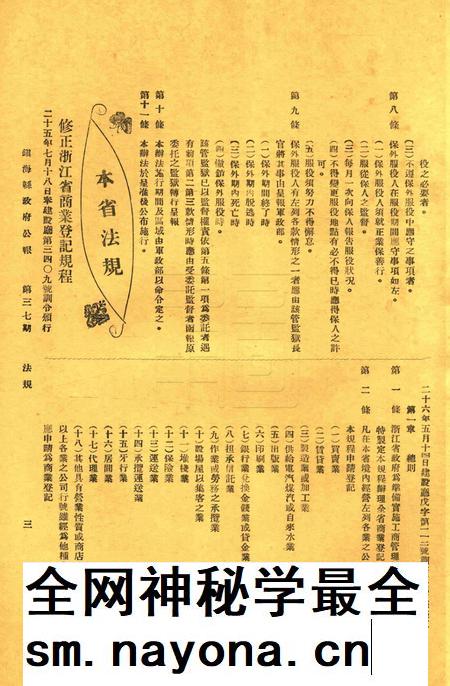 役之必要者。
(三)不遵保外服役中應守之事項者。
第八條 保外服役人在服役時期間應守事項如左。
(一)保外服役人須就正業保善行。
(二)服從保人之監督。
(三)每月一次向保人報告服役狀況。
(四)不得變更服役地點有必不得已時應得保人之許
可。
(五)服役毋勞力不得懈怠。
第九條 保外服役人有左列各款情形之一者應由該管監獄長
官將其事由呈報軍政部。
(一)保外期間終了時
(二)保外期內脫逃時
(三)保外期內死亡時
(四)撤銷保外服役時。
該管監獄已以監督權責依第五條第一項為委託者遇
有前項第二第三款情形時應由受委託監督者函報原
委托之監獄轉行呈報
第十條 本辦法施行期間及區域由軍政部以命令定之。
第十一條 本辦法於呈准後公布施行。
本省法規
修正浙江省商業登記規程
二十五年七月十八日奉建設廳第三四〇九號訓令頒行
二十六年五月十四日建設廳戊字第二一二號
第一章 總則
第一條 浙江省政府為準備實施工商管理
特製定本規程辦理全省商業登記
第二條 凡在本省境內經營左列各業之公
本規程申請登記
(一)買賣業
(二)賃貸業
(三)製造業或加工業
(四)供給電汽煤汽或自來水業
(五)出版業
(六)印刷業
(七)銀行業兌換金錢業或貸金業
(八)担承信託業
(九)作業或勞務之承攬業
(十)設場屋以集客之業
(十一)堆棧業
(十二)保險業
(十三)運送業
(十四)承攬運送業
(十五)牙行業
(十六)居間業
(十七)代理業
(十八)其他具有營業性質或商店
以上各業之公司行號雖經為他種
應申請為商業登記
鎮海縣政府公報 第三七期 法規 三
全网神秘学最全
sm.nayona.cn